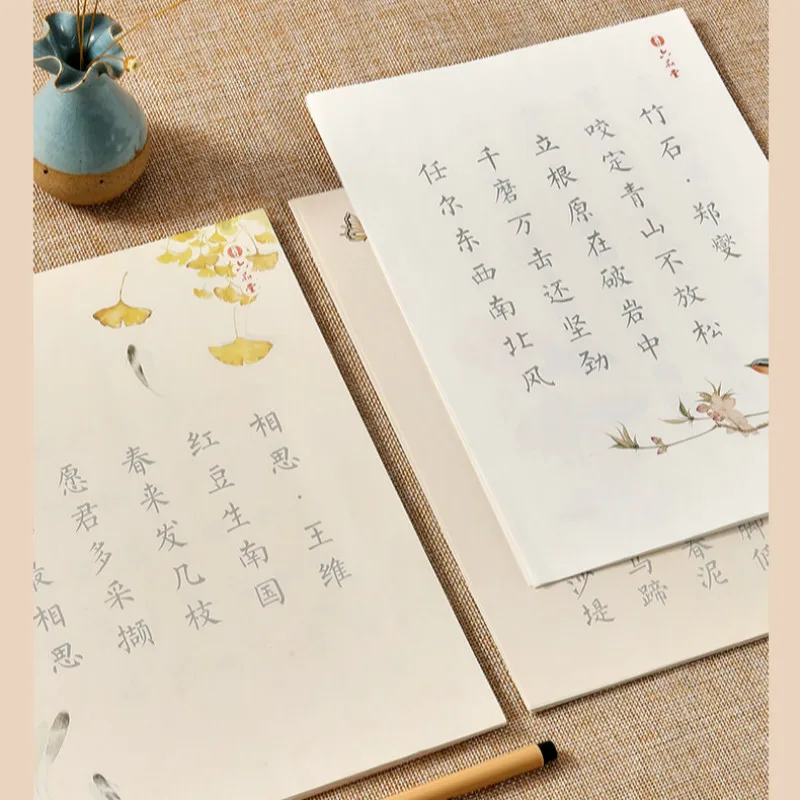 六品堂
竹石·郑燮
咬定青山不放松
立根原在破岩中
千磨万击还坚劲
任尔东西南北风
六品堂
相思·王维
红豆生南国
春来发几枝
愿君多采撷
相思
春泥
马蹄
沙堤